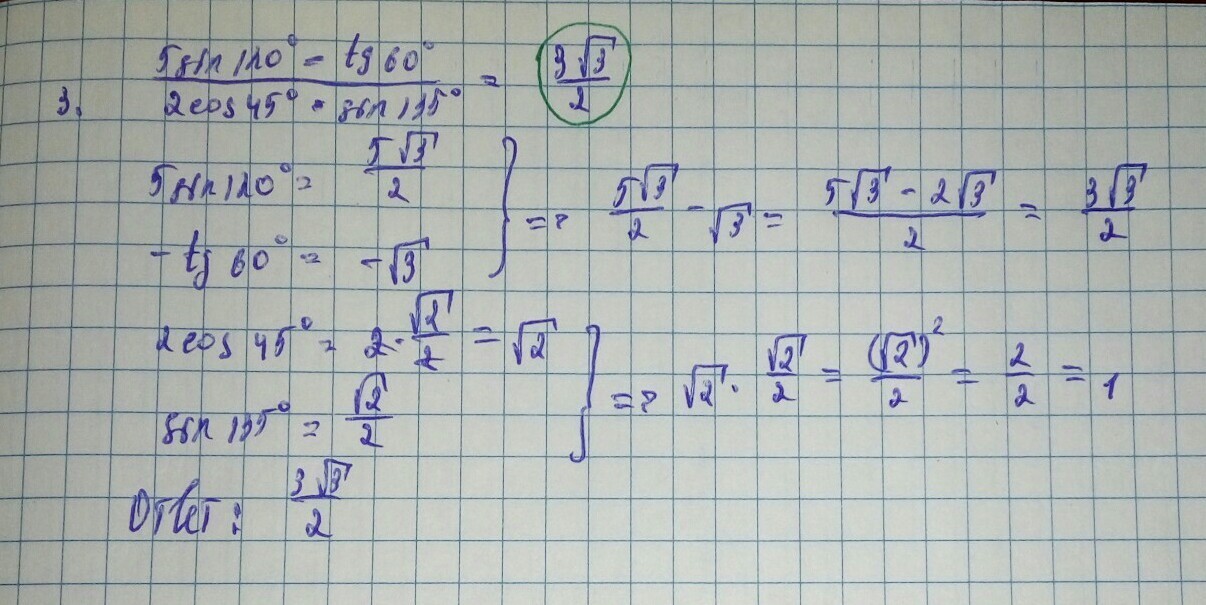 3. (5 sin 120° - tg 60°) / (2 cos 45° · sin 135°) = 3√3/2
5 sin 120° = 5√3/2
- tg 60° = -√3
} => 5√3/2 - √3 = (5√3 - 2√3)/2 = 3√3/2
2 cos 45° = 2 · √2/2 = √2
sin 135° = √2/2
} => √2 · √2/2 = (√2)²/2 = 2/2 = 1
Ответ: 3√3/2